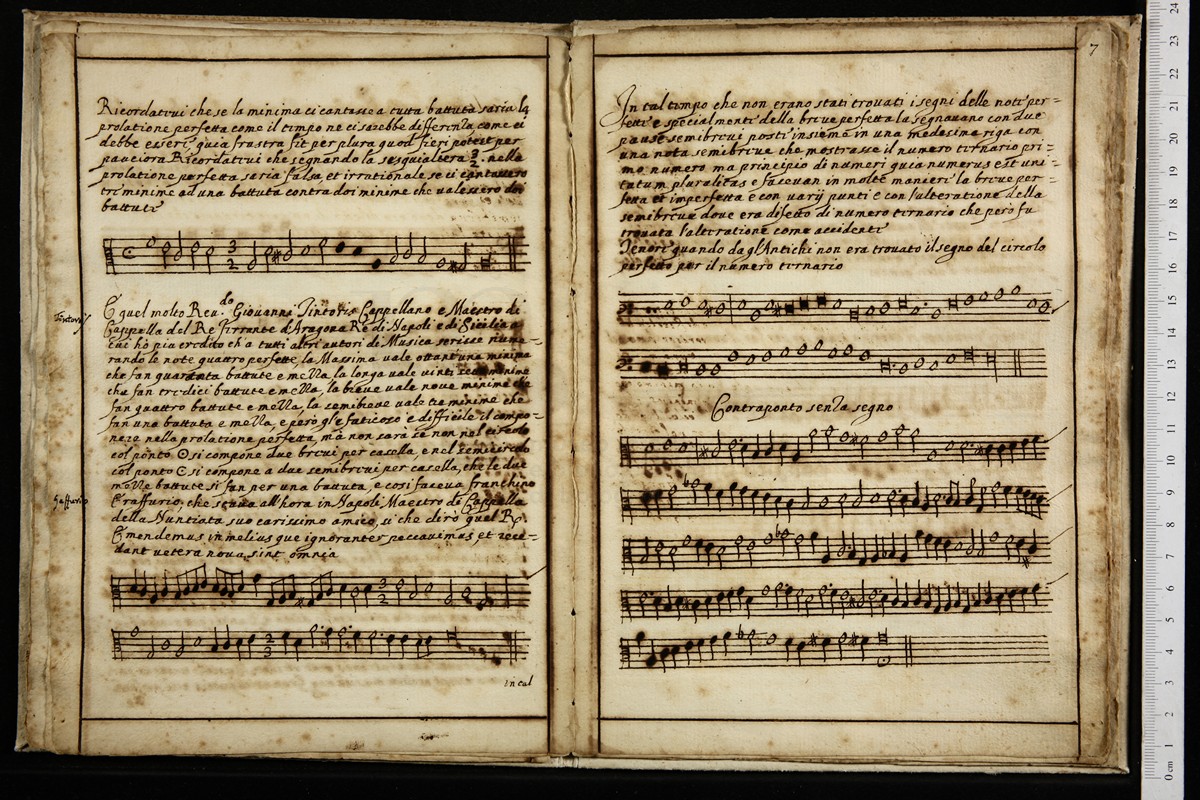 Ricordativi che se la minima ci cantasse a tutta battuta saria la
prolatione perfetta come il tempo ne ci sarebbe differinza come ci
debbe esseri quia frustra fit per plura quod fieri potest per
pauciora Ricordativi che segnando la sesquialtera 3/2 nella
prolatione perfetta seria falsa et irrationale se ci cantassero
tri minime ad una battuta contra doi minime che valesiro doi
battuti
3
2
E quel molto Reu.do Giovanni Tintoris Cappellano e Maestro di
Tintoris
Cappella del Re Ferrante d'Aragona Re di Napoli e di Sicilia a
cui hò piu credito ch'a tutti altri autori di Musica scrisse nume-
rando le note quattro perfette, la Massima vale ottant'una minima
che fan quaranta battute e mezza, la longa vale vinti sette minime
che fan tredici battute e mezza, la breve vale nove minime che
fan quattro battute e mezza, la semibreve vale tre minime che
fan una battuta e mezza, e però gl'è faticoso e difficile il compo-
nere nella prolatione perfetta, mà non sarà se non nel circolo
col ponto ʘ si compone due brevi per casella, e nel semicircolo
col ponto si compone a due semibrevi per casella, che le due
mezze battute si fan per una battuta, e cosi faceva franchino
Gaffurio
Graffurio, che stava all'hora in Napoli Maestro di Cappella
della Nuntiata suo carissimo amico, si che dirò quel
Emendemus in melius que ignoranter peccavimus, et rece-
dant vetera nova sint omnia
3
2
2
3
in tal
7
In tal tempo che non erano stati trovati i segni delle noti per-
fetti e specialmenti della breve perfetta la segnavano con due
pause semibrevi posti insiema in una medesima riga con
una nota semibreve che mostrasse il numero ternario pri-
mo numero ma principio di numeri quia numerus est uni-
tatum pluralitas e facevan in molte manieri la breve per-
fetta et imperfetta e con varij punti e con l'alteratione della
semibreve dove era difetto di numero ternario che però fu
trovata l'alteratione come accidenti
Tenori quando dagl'Antichi non era trovato il segno del circolo
perfetto per il numero ternario
Contraponto senza segno